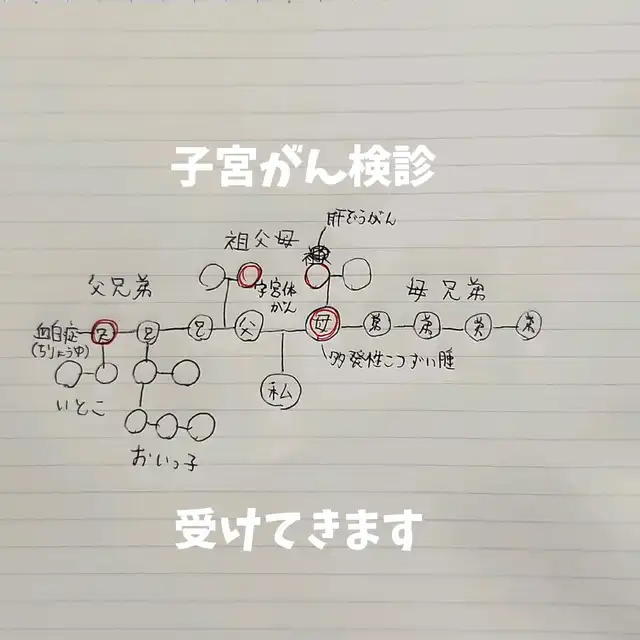 子宮がん検診
肝ぞうがん
祖父母
子宮体
がん
父兄弟
母兄弟
白血症
(ちりょうゆ)
兄 兄 兄 父 母 弟 弟 弟 弟
多発性こつずい腫
私
いとこ
おいっ子
受けてきます